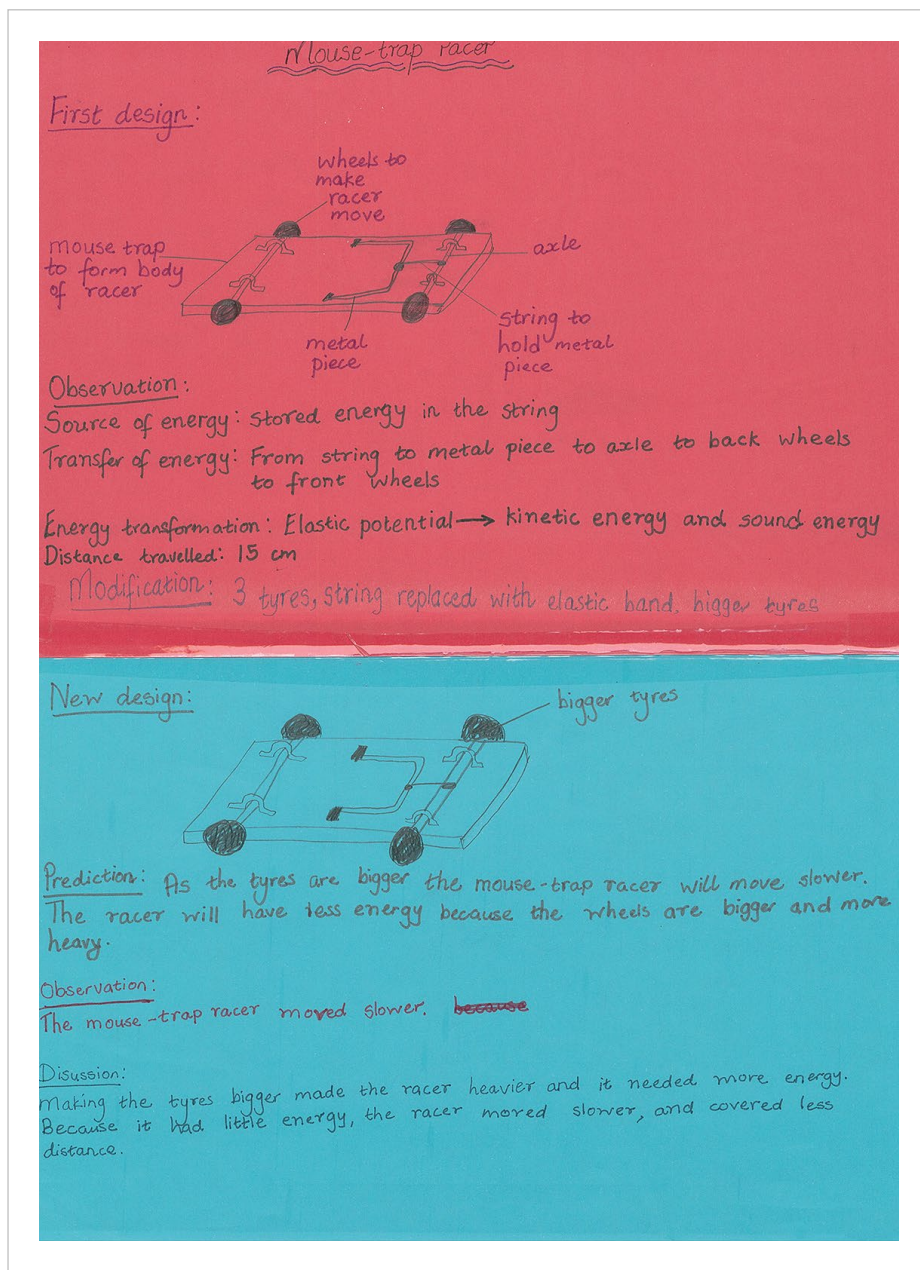 Mouse-trap racer
First design:
wheels to
make
racer
move
mouse trap
to form body
of racer
axle
metal
piece
string to
hold metal
piece
Observation:
Source of energy: stored energy in the string
Transfer of energy: From string to metal piece to axle to back wheels
to front wheels
Energy transformation: Elastic potential → kinetic energy and sound energy
Distance travelled: 15 cm
Modification: 3 tyres, string replaced with elastic band, bigger tyres
New design:
bigger tyres
Prediction: As the tyres are bigger the mouse-trap racer will move slower.
The racer will have less energy because the wheels are bigger and more
heavy.
Observation:
The mouse-trap racer moved slower. because
Disussion:
Making the tyres bigger made the racer heavier and it needed more energy.
Because it had little energy, the racer moved slower, and covered less
distance.